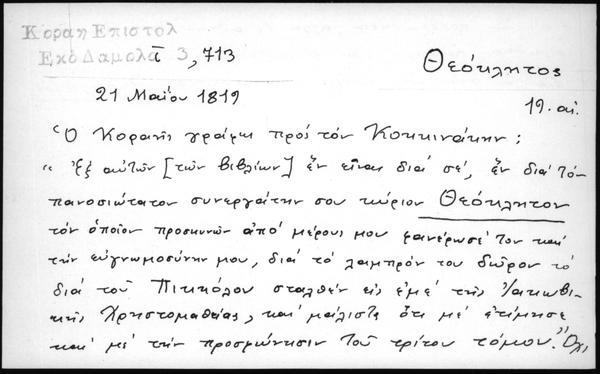 Κοραη Επιστολ
Εκδ Δαμαλά τ 3, 713
Θεόκλητος
21 Μαΐου 1819
19. αι.
Ὁ Κοραῆς γράφει πρός τόν Κοκκινάκην:
"Ἐξ αὐτῶν [τῶν βιβλίων] ἕν εἶναι διά σέ, ἕν διά τόν
πανοσιώτατον συνεργάτην σου κύριον Θεόκλητον
τόν ὁποῖον προσκυνῶν ἀπό μέρους μου φανέρωσέ τον καί
τήν εὐγνωμοσύνην μου, διά τό λαμπρόν του δῶρον τό
διά τοῦ Πικκόλου σταλθέν εἰς ἐμέ τῆς Ἰακωβι-
κῆς Χρηστομαθείας, καί μάλιστα ὅτι μέ ἐτίμησε
καί μέ τήν προσφώνησιν τοῦ τρίτου τόμου." Ὄχι